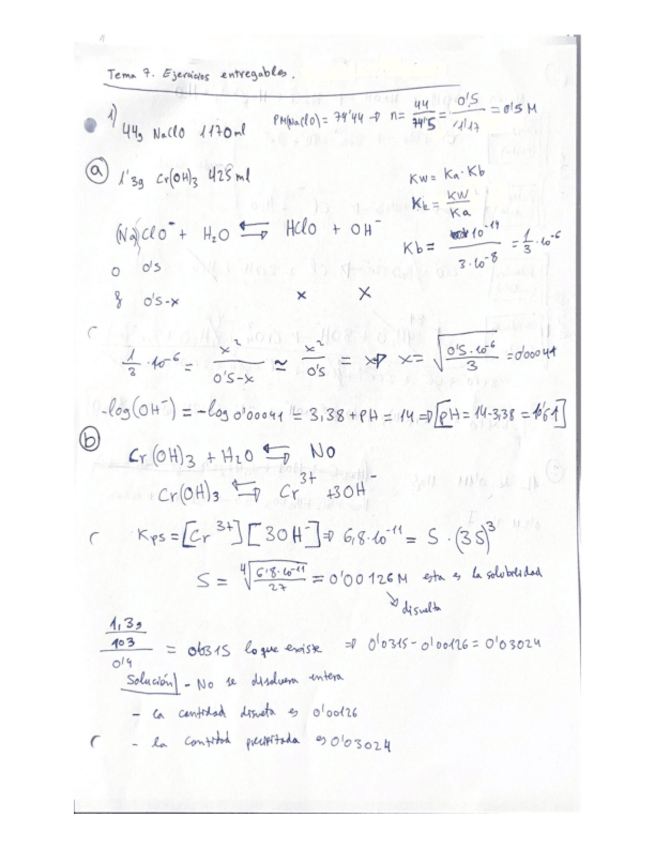 Tema 7. Ejercicios entregables.
1) 44g NaClO 1170 ml PM(NaClO) = 74'44 → n = 44/74'5 = 0'5/1'17 = 0'5 M
a) 1'3g Cr(OH)3 425 ml
Kw = Ka · Kb
Kb = Kw/Ka
Kb = 10^-14 / 3·10^-8 = 1/3 · 10^-6
(Na)ClO^- + H2O ⇆ HClO + OH^-
0 0's
0's-x x x
1/3 · 10^-6 = x^2/0's-x ≈ x^2/0's = x → x = √(0's·10^-6/3) = 0'00041
-log(OH^-) = -log 0'00041 = 3,38 + PH = 14 ⇒ [pH = 14-3,38 = 1'61]
b) Cr(OH)3 + H2O ⇆ NO
Cr(OH)3 ⇆ Cr^3+ + 3OH^-
Kps = [Cr^3+][3OH^-] ⇒ 6,8·10^-11 = S · (3S)^3
S = ⁴√(6'8·10^-11/27) = 0'00126 M esta es la solubilidad
↘ disuelta
1,3g/103/0'4 = 0'0315 lo que existe ⇒ 0'0315 - 0'00126 = 0'03024
Solución - No se disolvera entera
- la cantidad disuelta es 0'00126
- la cantidad precipitada es 0'03024